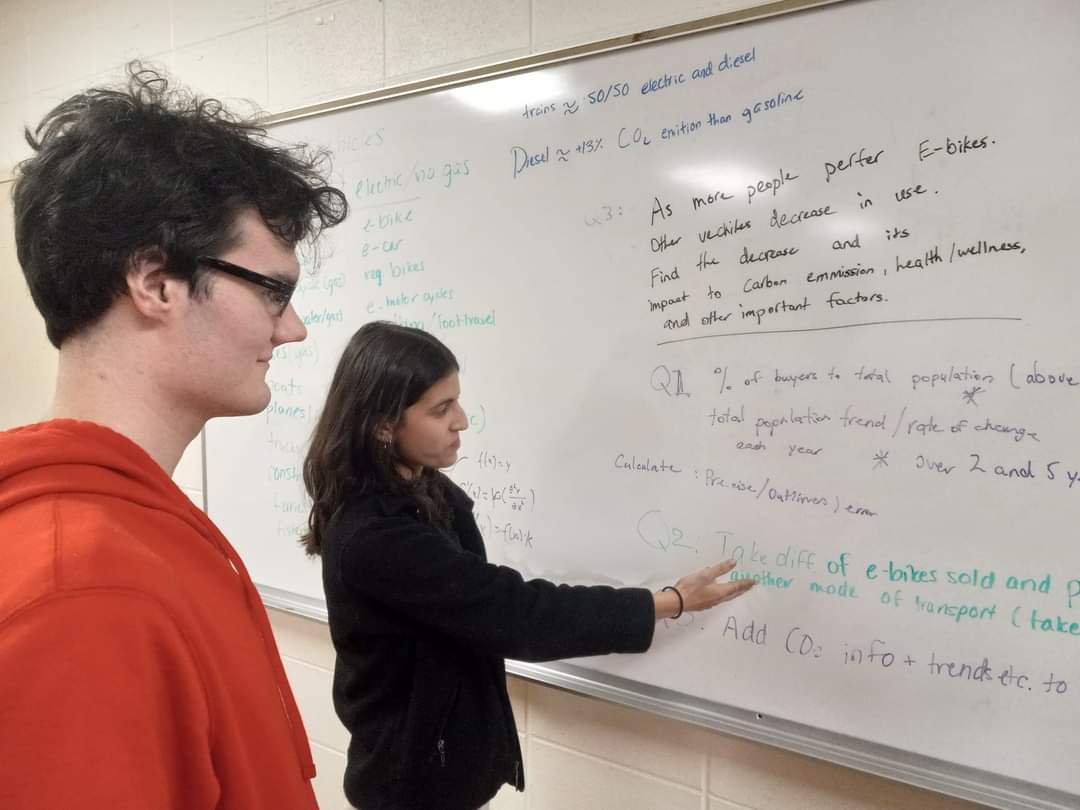 trains ≈ 50/50 electric and diesel
Diesel ≈ +13% CO₂ emition than gasoline
hicles
electric/no gas
e-bike
e-car
reg bikes
e-motor cycles
foot-travel
gas)
oats
planes
Q3: As more people perfer E-bikes.
Other vechiles decrease in use.
Find the decrease and its
impact to Carbon emmission, health/wellness,
and other important factors.
Q1 % of buyers to total population (above
total population trend / rate of change
each year * over 2 and 5 y
Calculate: error
Q2. Take diff of e-bikes sold and p
another mode of transport (take
3. Add CO₂ info + trends etc. to
f(x)=y